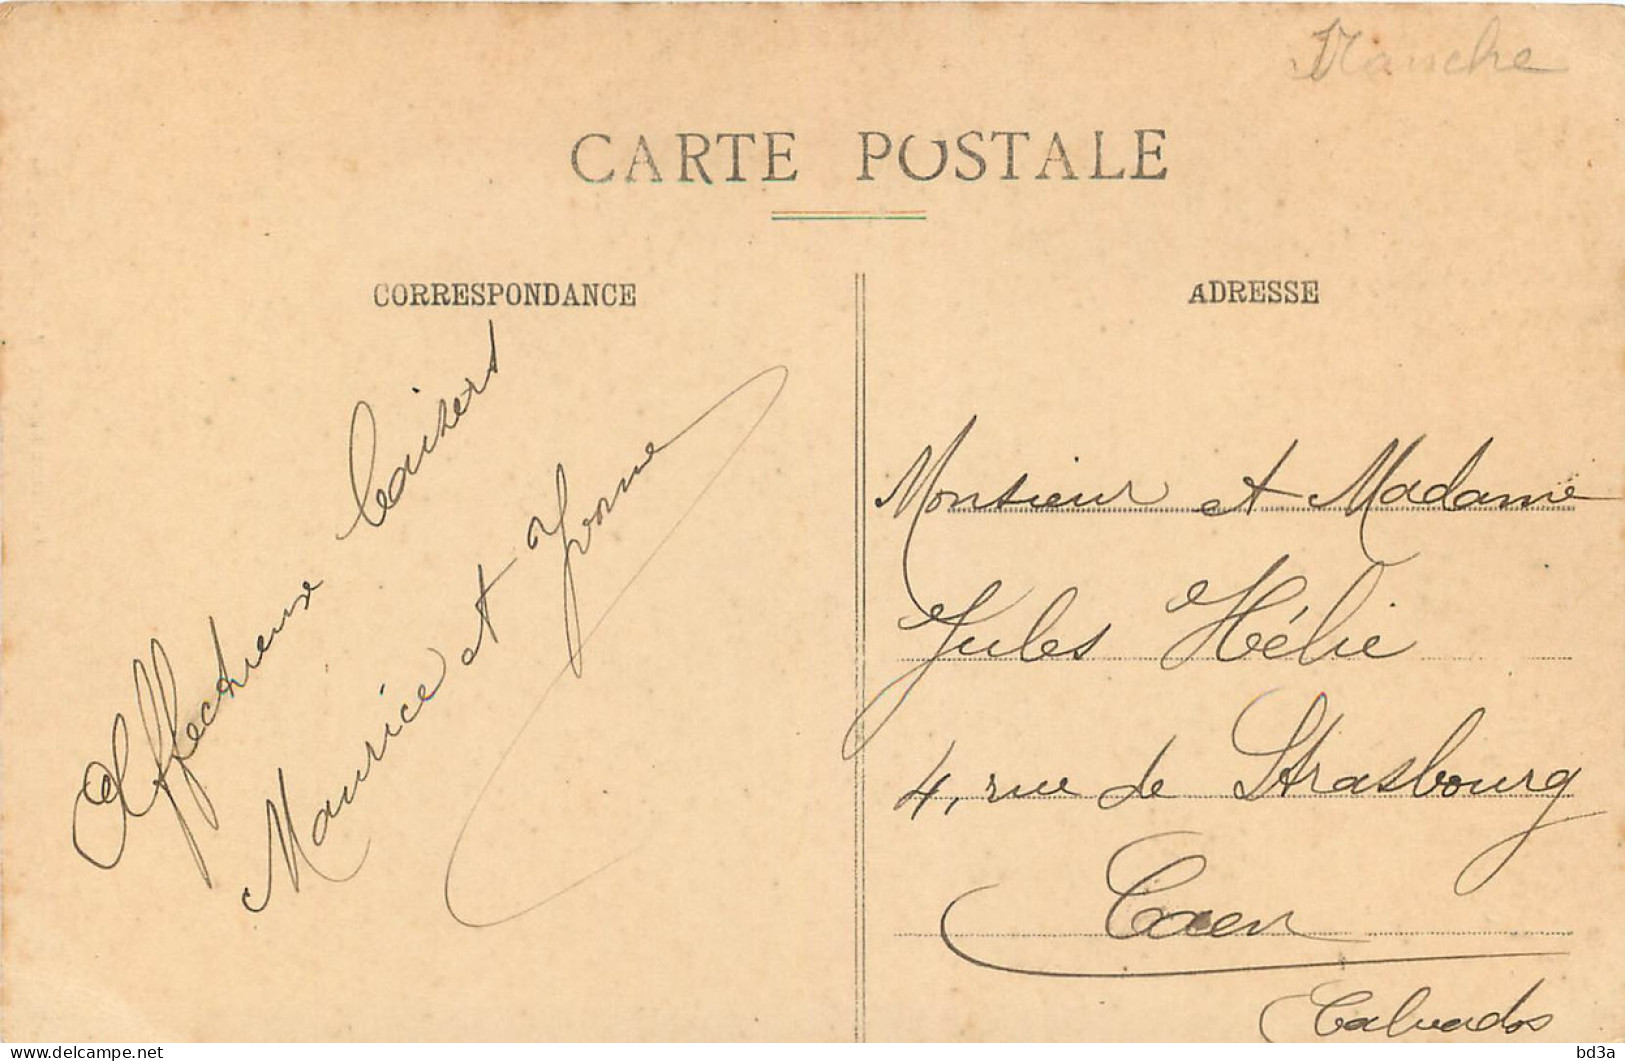 Manche
CARTE POSTALE
CORRESPONDANCE
Affectueux baisers
Maurice et Yvonne
ADRESSE
Monsieur et Madame
Jules Hélie
4, rue de Strasbourg
Caen
Calvados
delcampe.net
bd3a